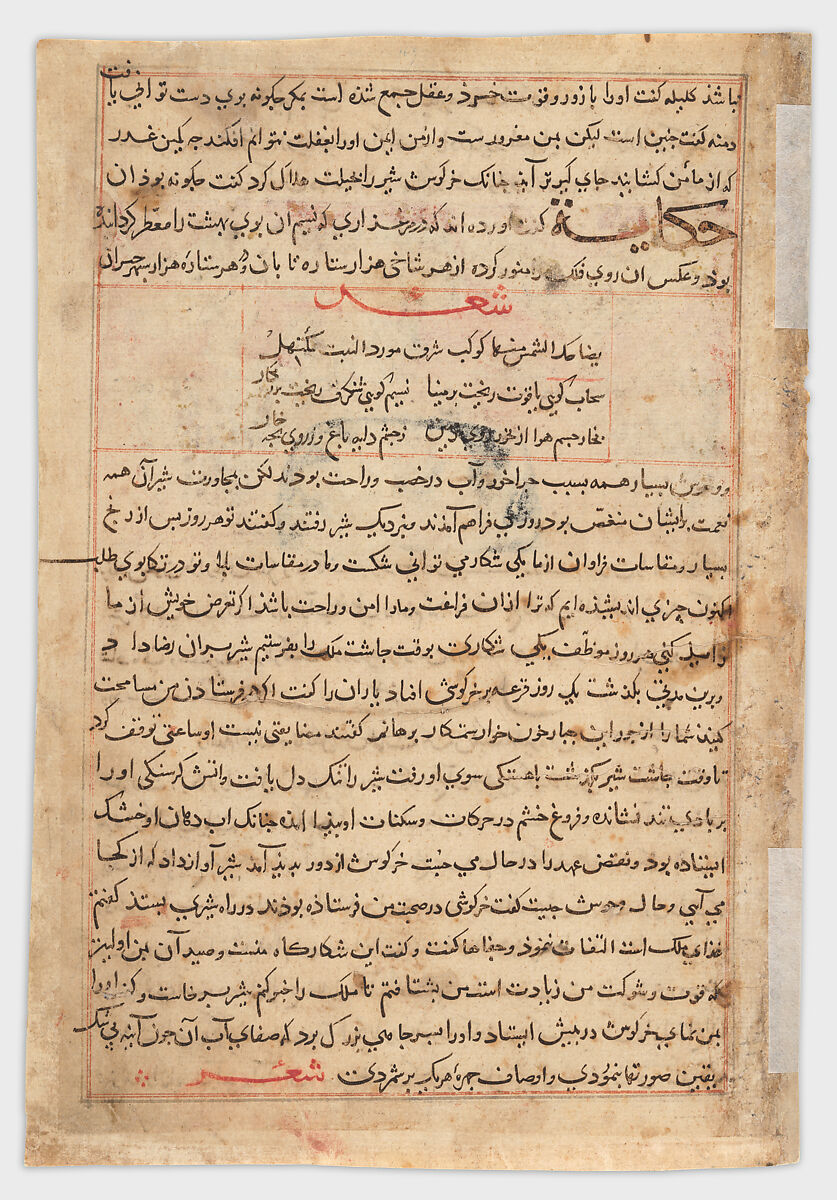 فت
باشذ کلیله کفت اورا بازور و قوت خرد و عقل جمع شذه است بمکر جکونه بروی دست توانی یا
دمنه کفت جنین است لیکن بمن مغرورست و ازمن ایمن اورا بغفلت بتوانم افکند جه کمین غدر
که از مأمن کشایند جای کیرتر آید جنانک خرکوش شیر را بحیلت هلاک کرد کفت جکونه بوذ ان
حکایة کفت اورده اند که در مرغزاری که نسیم ان بوی بهشت را معطر کردانیذه
بوذ و عکس ان روی فلک را منور کرده از هر شاخی هزار ستاره تابان و در هر ستاره هزار سبهر حیران
شعر
یضاحک الشمس منها کوکب شرق موزر النبت مکتهل
سحاب کویی یاقوت ریخت بر مینا نسیم کویی شنکرف ریخت بر زنکار
بخار جسم هوا از بخور روی زمین زجشم دایه باغ و ز روی بجه خار
و وحوش بسیار همه بسبب جراخور و آب در خصب و راحت بوذند لکن بمجاورت شیر آن همه
نعمت بر ایشان منغص بوذ روزی فراهم آمذند و بنزدیک شیر رفتند و کفتند تو هر روز بس از رنج
بسیار و مقاسات فراوان از ما یکی شکار می توانی شکست و ما در مقاسات بلا و تو در تکابوی طلب
اکنون جیزی اندیشیذه ایم که ترا از ان فراغت و مارا امن و راحت باشذ اکر تعرض خویش از ما
زایل کنی هر روز موظف یکی شکاری بوقت جاشت ملک را بفرستیم شیر بران رضا داد
و برین مدتی بکذشت یک روز قرعه بر خرکوش افتاد یاران را کفت اکر در فرستادن من مسامحت
کنید شمارا از جور این جبار خون خوار ستمکار برهانم کفتند مضایقتی نیست او ساعتی توقف کرد
تا وقت جاشت شیر بکذشت باهستکی سوی او رفت شیر را تنک دل یافت و اتش کرسنکی اورا
بر بادی تند نشانده و فروغ خشم در حرکات و سکنات او بدیذ امذه جنانک اب دهان او خشک
ایستاده بود و نقض عهد را در خاک می جست خرکوش از دور بدیذ آمذ شیر آواز داد که از کجا
می آیی و حال وحوش جیست کفت خرکوشی در صحبت من فرستاذه بوذند در راه شیری بستذ کفتم
غذای ملک است التفات ننموذ و جفاها کفت و کفت این شکارکاه منست و صید آن بمن اولیتر
که قوت و شوکت من زیادت است من بشتافتم تا ملک را خبر کنم شیر برخاست و کفت اورا
بمن نمای خرکوش در بیش ایستاد و اورا بسر جاهی بزرک برد که صفای آب آن جون آینه بی شک
و یقین صورتها بنموذی و اوصاف جهره هر یک برشمردی شعر